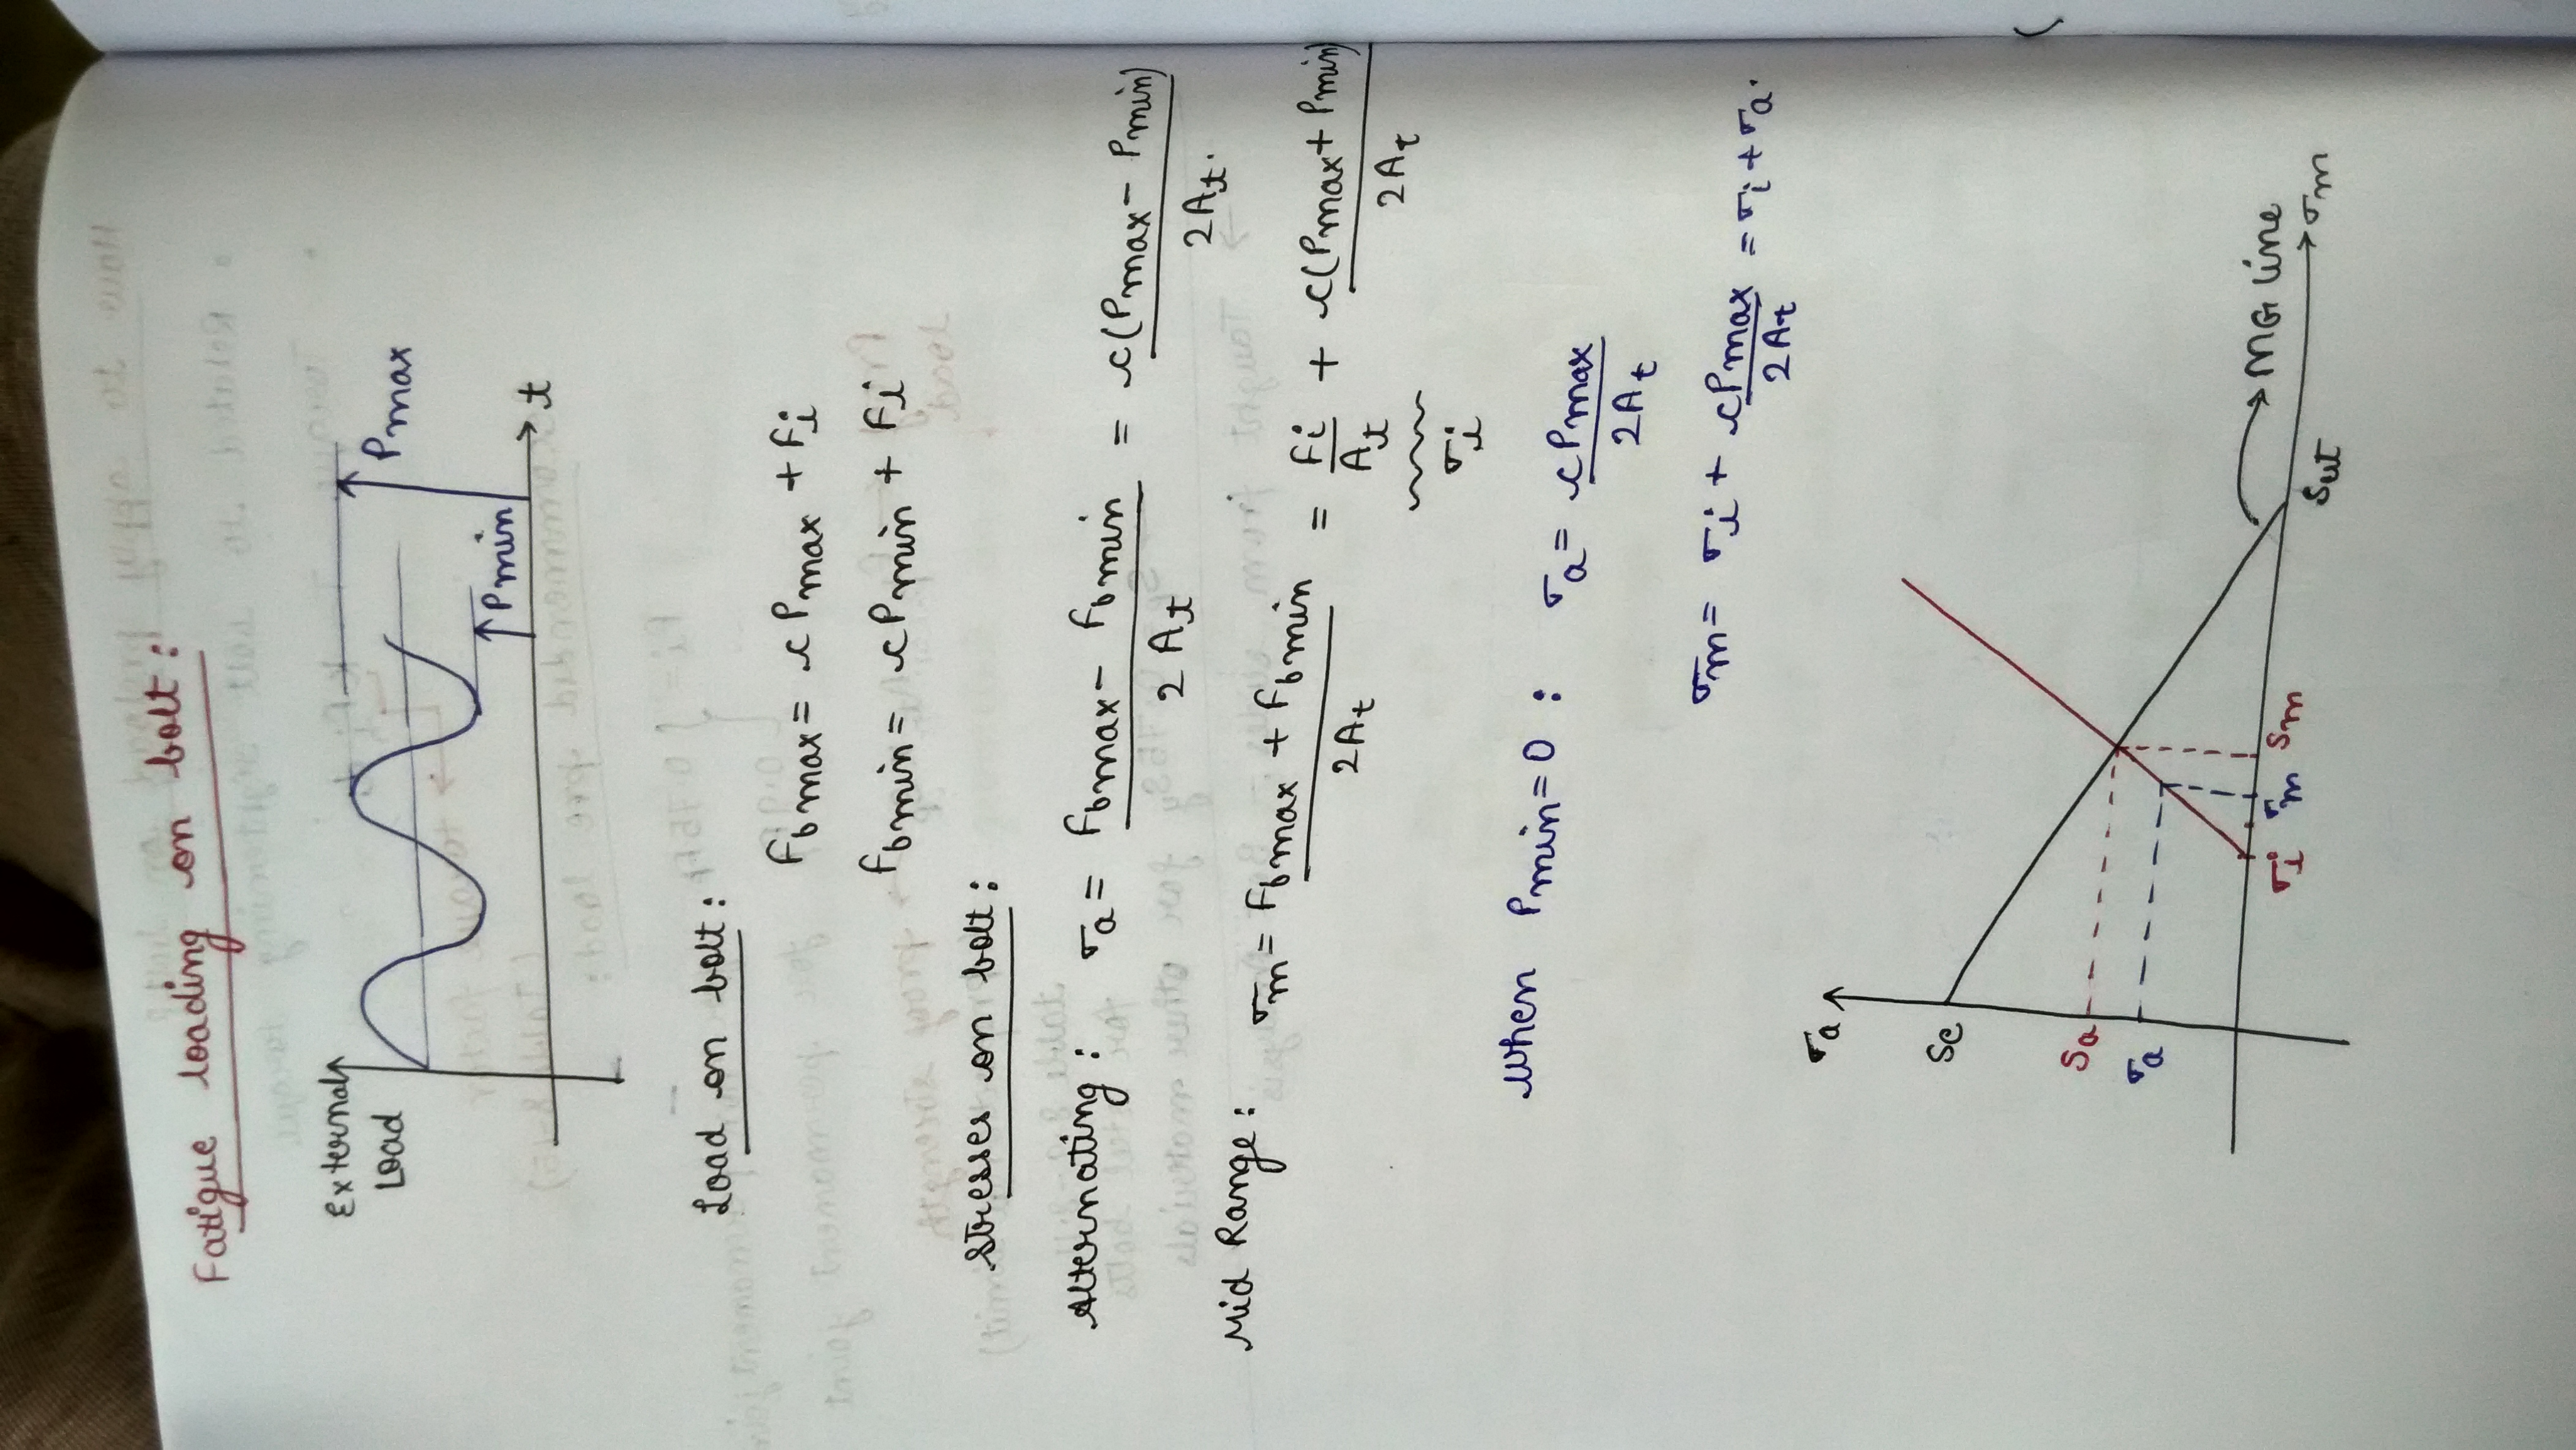 Fatigue loading on bolt:
External
Load
Pmax
Pmin
t
Load on bolt:
Fbmax = cPmax + Fi
Fbmin = cPmin + Fi
Stresses on bolt:
Alternating: σa = (Fbmax - Fbmin)/2At = c(Pmax - Pmin)/2At.
Mid Range: σm = (Fbmax + Fbmin)/2At = Fi/At + c(Pmax + Pmin)/2At
σi
When Pmin = 0 : σa = cPmax/2At
σm = σi + cPmax/2At = σi + σa.
σa
Se
Sa
σa
MG line
σi σm Sm
Sut
σm